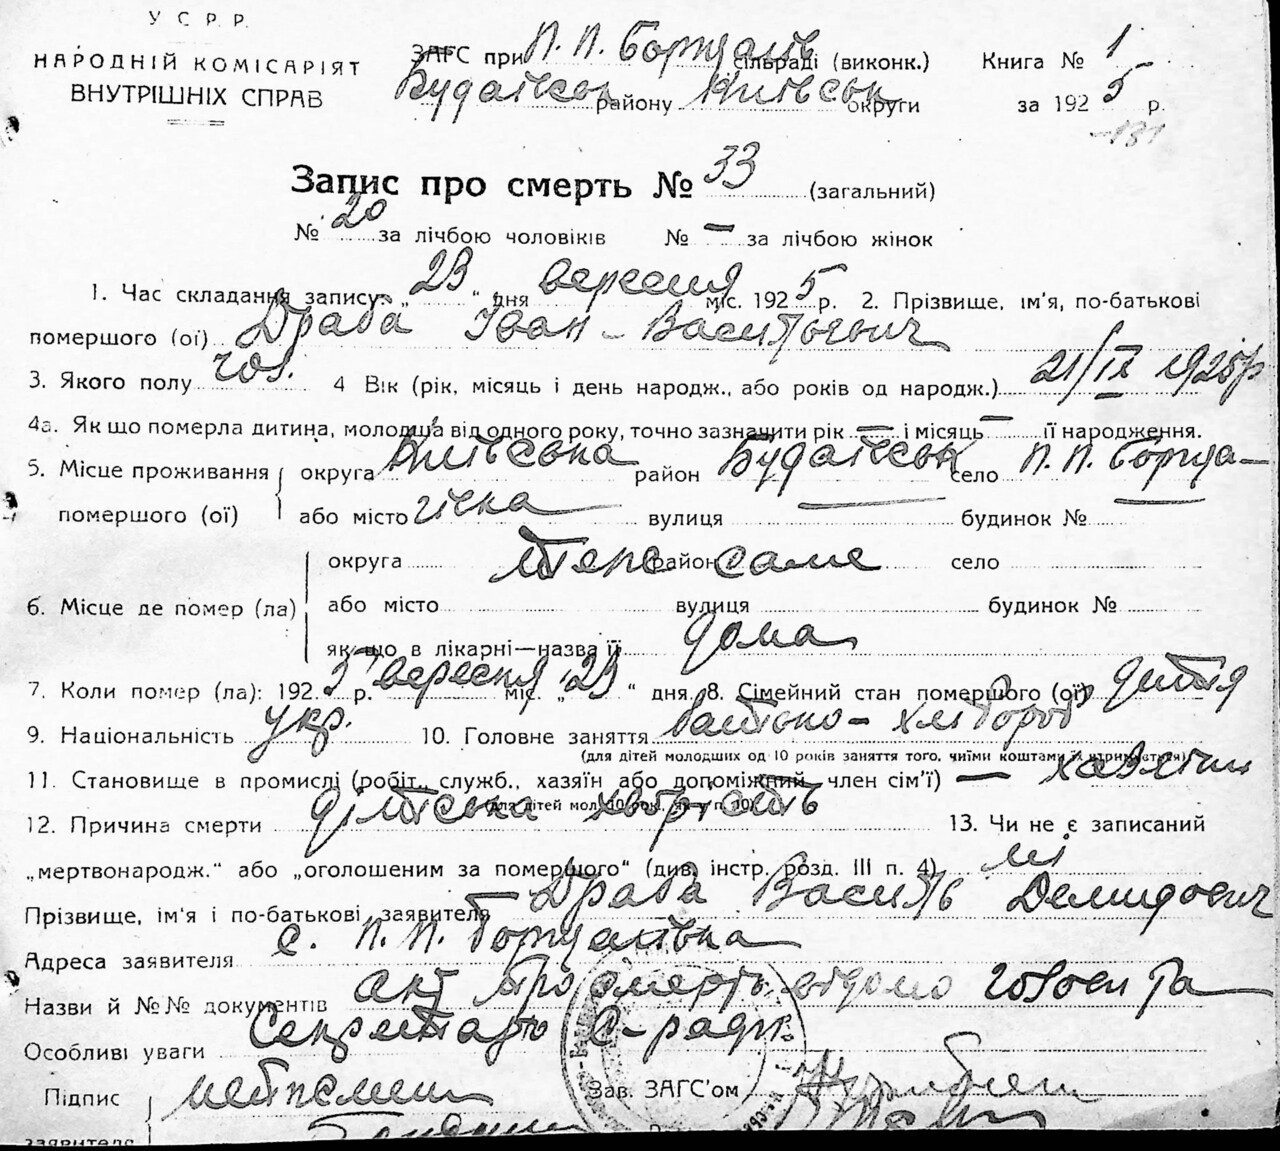 У С Р Р.
НАРОДНІЙ КОМІСАРІЯТ
ВНУТРІШНІХ СПРАВ
ЗАГС при П. П. Борщагів сільраді (виконк.) Книга № 1
Будаївськ району Київськ округи за 1925 р.
-131
Запис про смерть № 33 (загальний)
№ 20 за лічбою чоловіків № — за лічбою жінок
1. Час складання запису: „23“ дня вересня міс. 1925 р. 2. Прізвище, ім'я, по-батькові
помершого (ої) Драба Іван Васильович
3. Якого полу чол. 4 Вік (рік, місяць і день народж., або років од народж.) 21/IX 1925 р
4а. Якщо померла дитина, молодша від одного року, точно зазначити рік — і місяць — її народження.
5. Місце проживання округа Київська район Будаївськ село П. П. Борща-
помершого (ої) або місто гівка вулиця — будинок № —
округа теж район саме село
6. Місце де помер (ла) або місто вулиця будинок №
якщо в лікарні—назва її дома
7. Коли помер (ла): 1925 р. вересня міс. „23“ дня. 8. Сімейний стан помершого (ої) дитя
9. Національність укр. 10. Головне заняття батько - хлібороб
(для дітей молодших од 10 років заняття того, чиїми коштами їх утримується)
11. Становище в промислі (робіт., служб., хазяїн або допоміжний член сім'ї) — хазяїн
(для дітей мол. 10 рок., як у п. 10)
12. Причина смерти дитяська хворість 13. Чи не є записаний
„мертвонародж.“ або „оголошеним за помершого“ (див. інстр. розд. III п. 4) ні
Прізвище, ім'я і по-батькові заявителя Драба Василь Демидович
Адреса заявителя с. П. П. Борщагівка
Назви й №№ документів акт про смерть відомо голова та
Особливі уваги Секретарь С-ради
Підпис неписмен Зав. ЗАГС'ом
заявителя